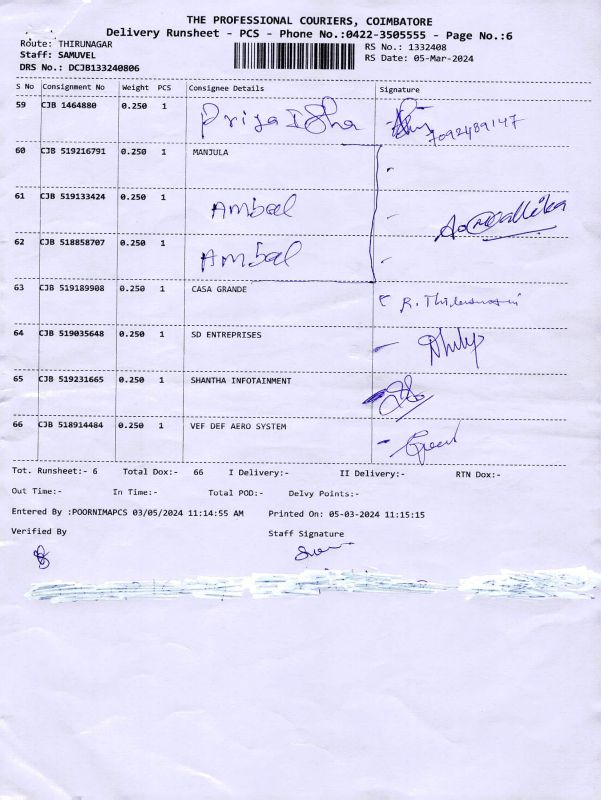 THE PROFESSIONAL COURIERS, COIMBATORE
Delivery Runsheet - PCS - Phone No.:0422-3505555 - Page No.:6
Route: THIRUNAGAR RS No.: 1332408
Staff: SAMUVEL RS Date: 05-Mar-2024
DRS No.: DCJB133240806
S No Consignment No Weight PCS Consignee Details Signature
59 CJB 1464880 0.250 1 Priya Isha 7092489147
60 CJB 519216791 0.250 1 MANJULA
61 CJB 519133424 0.250 1 Ambal
62 CJB 518858707 0.250 1 Ambal
63 CJB 519189908 0.250 1 CASA GRANDE
64 CJB 519035648 0.250 1 SD ENTREPRISES
65 CJB 519231665 0.250 1 SHANTHA INFOTAINMENT
66 CJB 518914484 0.250 1 VEF DEF AERO SYSTEM
Tot. Runsheet:- 6 Total Dox:- 66 I Delivery:- II Delivery:- RTN Dox:-
Out Time:- In Time:- Total POD:- Delvy Points:-
Entered By :POORNIMAPCS 03/05/2024 11:14:55 AM Printed On: 05-03-2024 11:15:15
Verified By Staff Signature